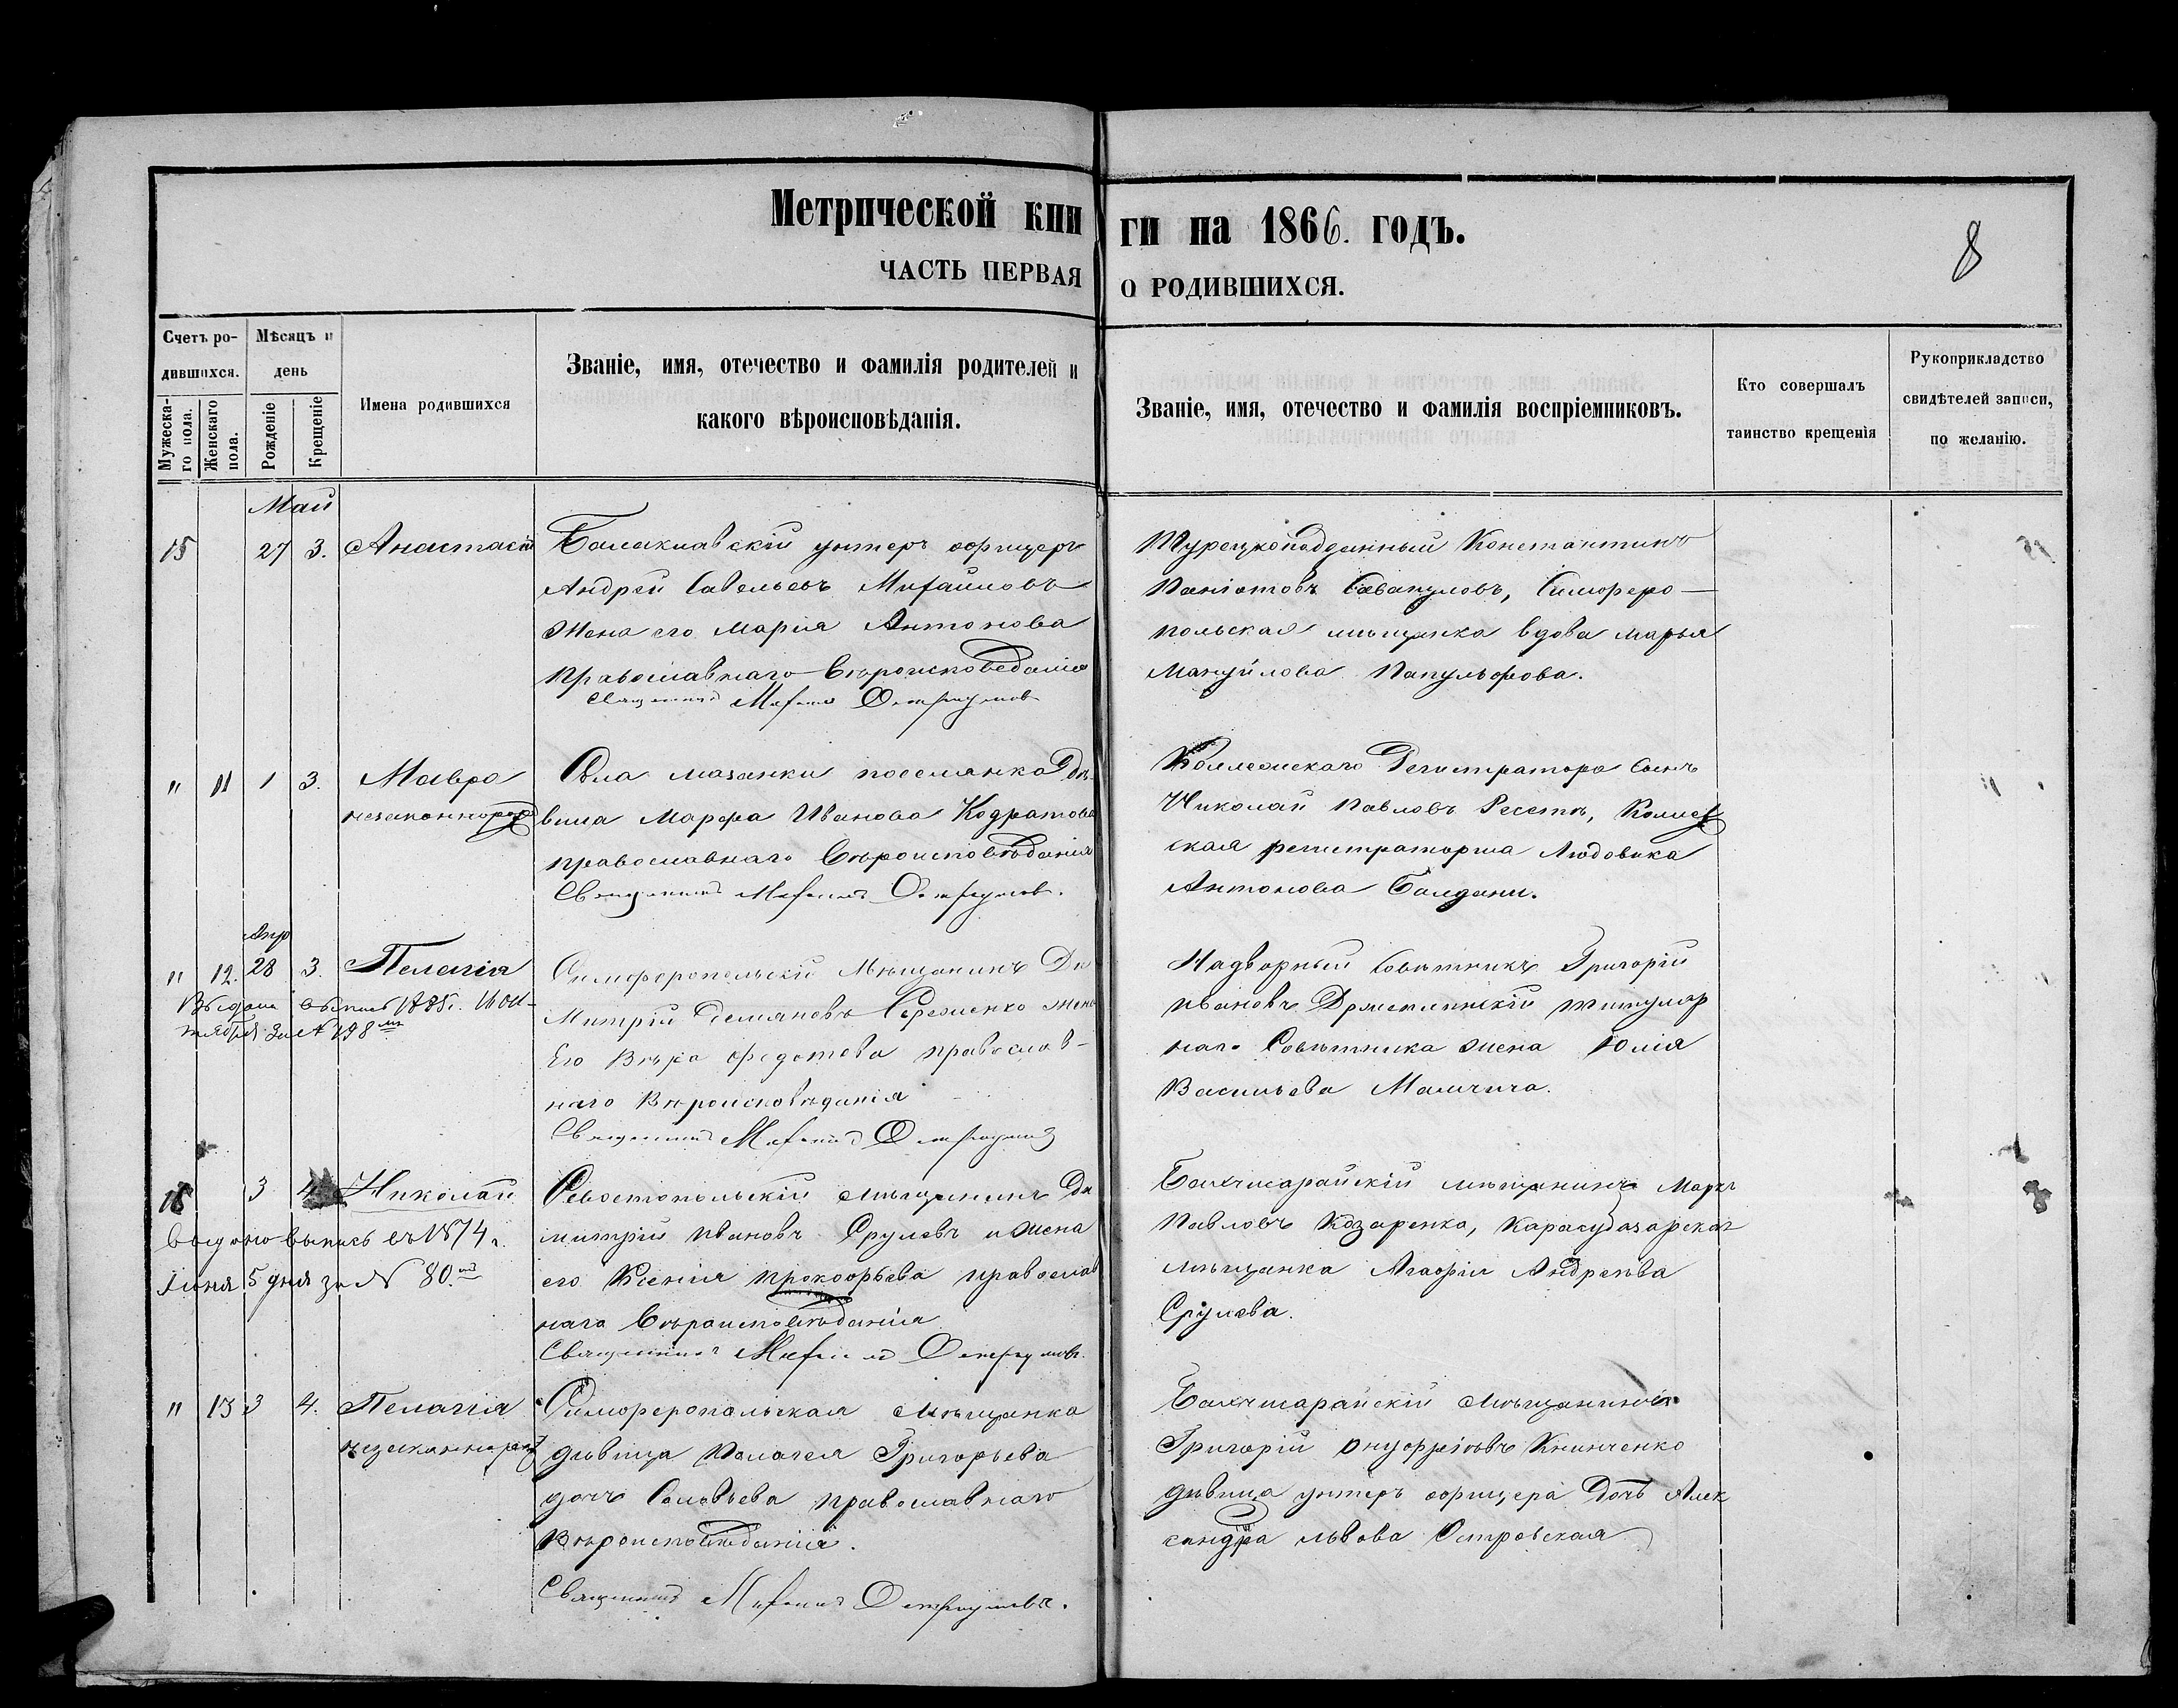 Метрической кни
ги на 1866. годъ.
8
ЧАСТЬ ПЕРВАЯ
О РОДИВШИХСЯ.
Счетъ ро-
дившихся.
Мужеска-
го пола.
Женскаго
пола.
Мѣсяцъ и
день
Рожденіе
Крещеніе
Имена родившихся
Званіе, имя, отечество и фамилія родителей и
какого вѣроисповѣданія.
Званіе, имя, отечество и фамилія воспріемниковъ.
Кто совершалъ
таинство крещенія
Рукоприкладство
свидѣтелей записи,
по желанію.
Май
15 27 3. Анастасій
Балаклавскій унтеръ офицеръ
Андрей Савельевъ Михайловъ
Жена его Марія Антонова
православнаго вѣроисповеданія
Священникъ
Турецкоподданный Константинъ
Паніотовъ Савапуловъ, Симферо-
польская мѣщанка вдова Марья
Мануйлова Папульфова.
" 11 1 3. Мавра
незаконнорож
Села мазанки поселянка дѣ-
вица Марфа Иванова Кодратова
православнаго вѣроисповѣданія
Священникъ
Коллежскаго Регистратора сынъ
Николай Павловъ Ресети, Коллеж
ская регистраторша Людовика
Антонова Балдани.
Апр
" 12. 28 3. Пелагія
Выдана выпись 1885г.
за № 198
Симферопольскій Мѣщанинъ Ди
митрій Демяновъ Сереженко жена
Его Вѣра Федотова православ-
наго Вѣроисповѣданія
Священникъ
Надворный Совѣтникъ Григорій
Ивановъ титуляр
наго Совѣтника жена Юлія
Васильева
16 3 4. Николай
Выдано выпись въ 1874 г.
Іюня 5 дня за № 80.
Севастопольскій мѣщанинъ Ди
митрій Ивановъ Срулевъ и жена
его Ксенія прокофьева православ
наго вѣроисповѣданія
Священникъ
Бахчисарайскій мѣщанинъ Маркъ
Павловъ Козаренко, Карасубазарская
мѣщанка Агафія Андреева
Срулева.
" 13 3 4. Пелагія
незаконнорож
Симферопольская Мѣщанка
дѣвица Пелагея Григорьева
дочь Соловьева православнаго
Вѣроисповѣданія.
Священникъ
Бахчисарайскій Мѣщанинъ
Григорій Онуфріевъ Книнченко
дѣвица унтеръ офицера дочь Алек
сандра Львова Островская